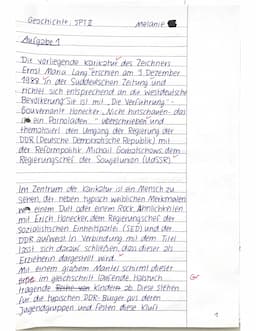 Geschichte, JPT 2 Melanie
Aufgabe 1
Die vorliegende Karikatur des Zeichners
Ernst Maria Lang erschien am 3. Dezember
1989 in der Süddeutschen Zeitung und
richtet sich entsprechend an die westdeutsche
Bevölkerung. Sie ist mit „Die Verführung" -
Gouvernante Honecker: „Nicht hinschauen - das
ein Pornoladen" überschrieben und
thematisiert den Umgang der Regierung der
DDR (Deutsche Demokratische Republik) mit
der Reformpolitik Michail Gorbatschows, dem
Regierungschef der Sowjetunion (UdSSR).
Im Zentrum der Karikatur ist ein Mensch zu
sehen, der neben typisch weiblichen Merkmalen
einem Dutt oder einem Rock, Ähnlichkeiten
mit Erich Honecker, dem Regierungschef der
Sozialistischen Einheitspartei (SED) und der
DDR aufweist. In Verbindung mit dem Titel
lässt sich daraus schließen, dass dieser als
Erzieherin dargestellt wird.
Mit einem großen Mantel schirmt dieser
eine im gleichschritt laufende, Halstuch
Gr
tragende Reihe von Kindern ab. Diese stehen
für die typischen DDR-Bürger aus deren
Jugendgruppen und festen diese Kluft
1